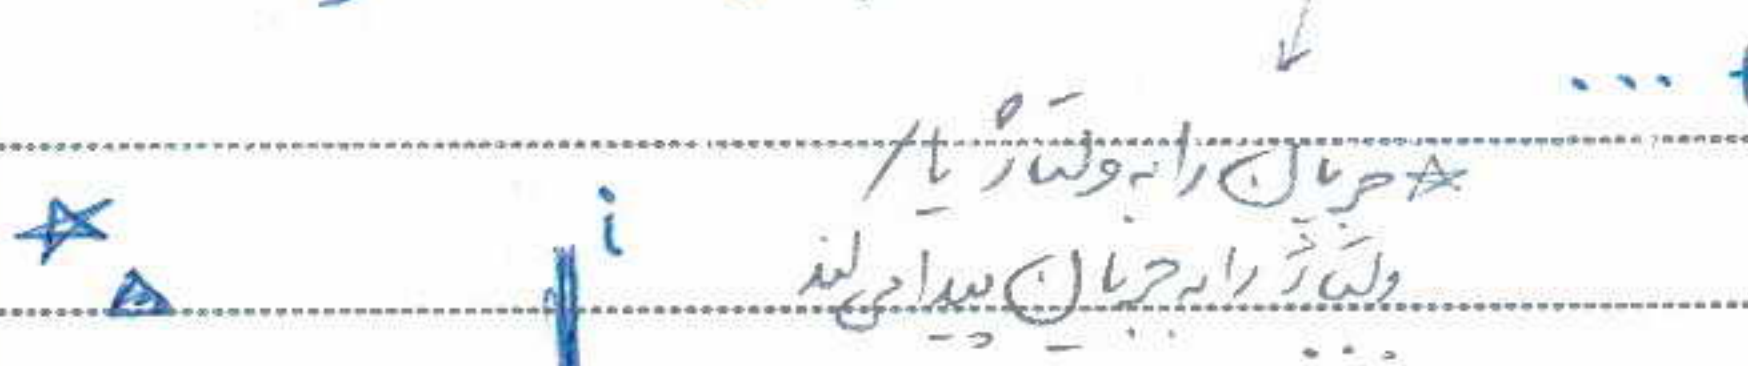 ...
☆ جریان را به ولتاژ یا /
i
ولتاژ را به جریان پیدا می کند